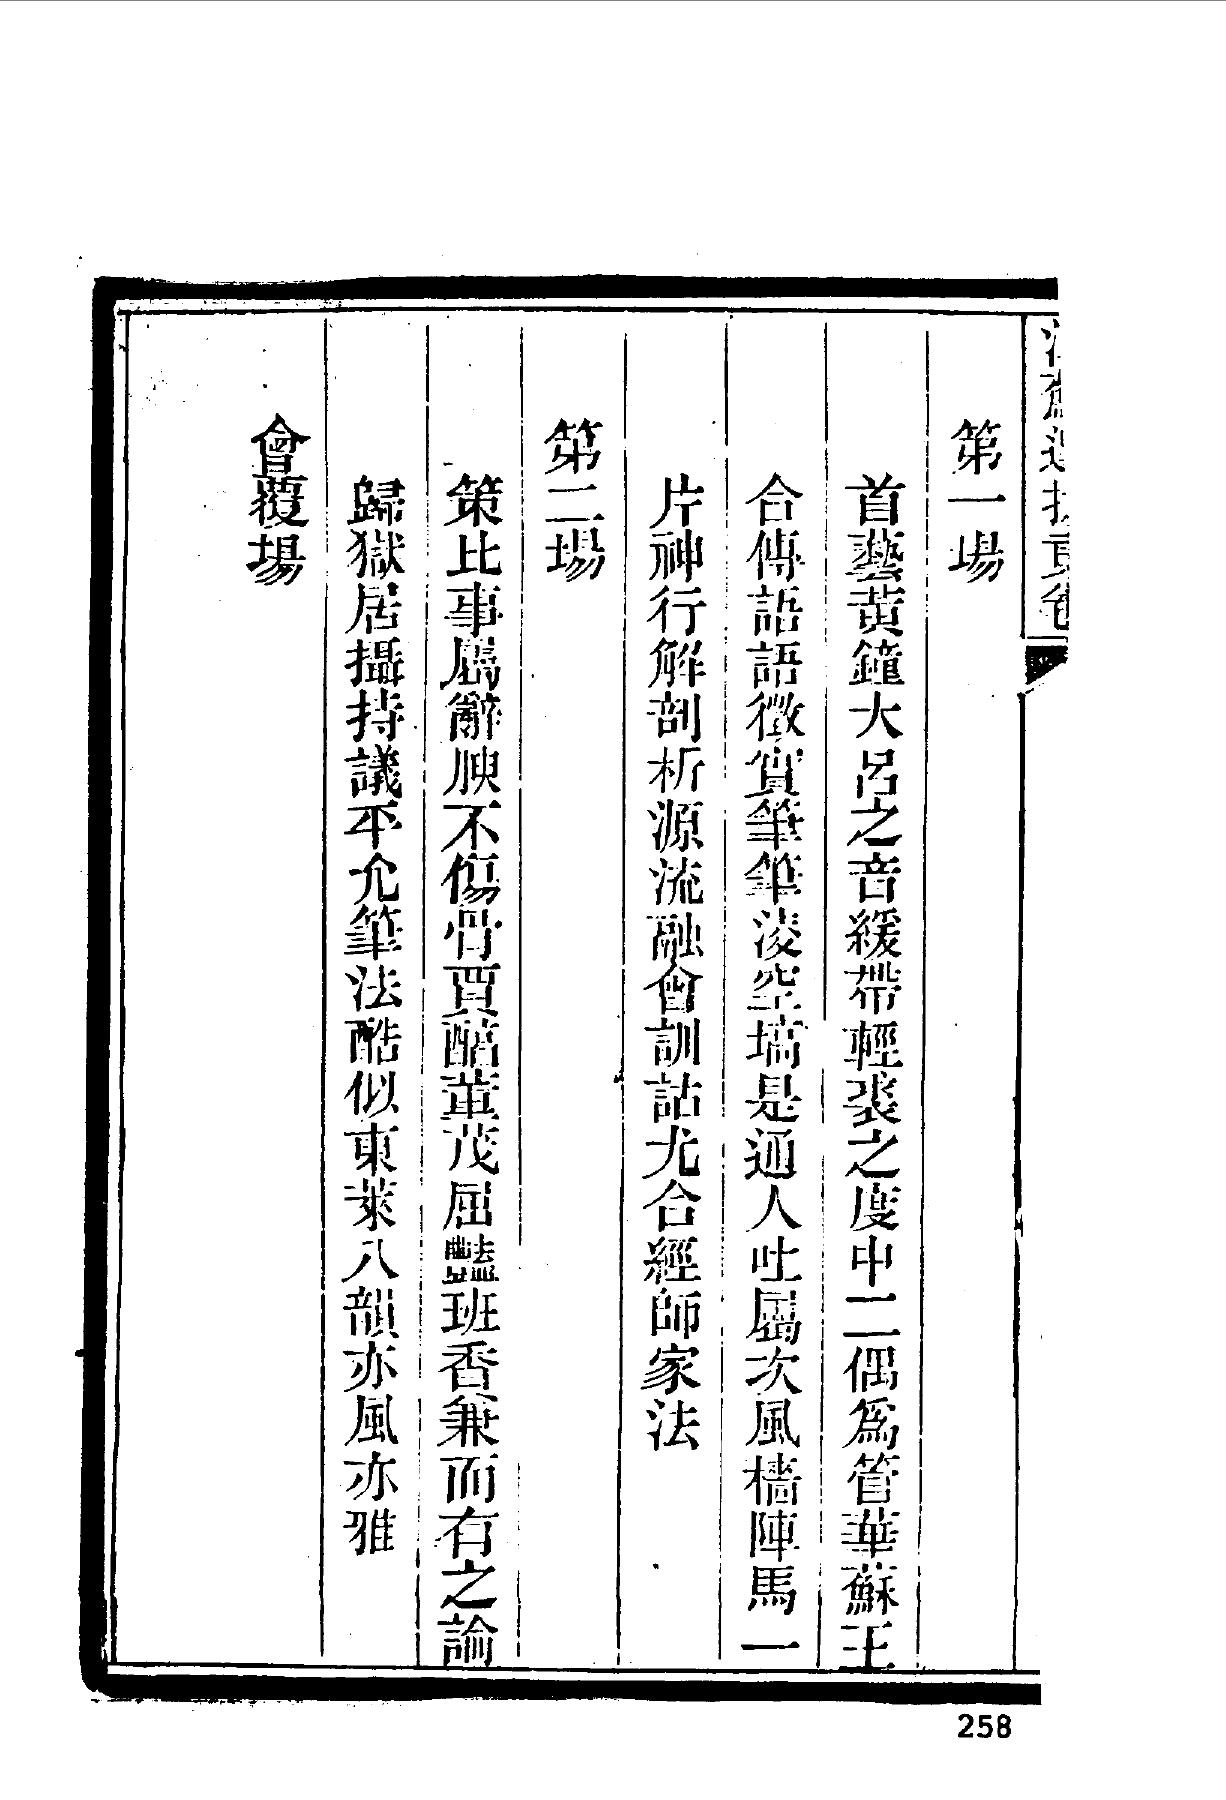 選拔貢卷
第一場
首藝黃鐘大呂之音緩帶輕裘之度中二偶爲管華蘇王
合傳語語徵實筆筆淩空塙是通人吐屬次風檣陣馬一
片神行解剖析源流融會訓詁尤合經師家法
第二場
策比事屬辭腴不傷骨賈醞董茂屈豔班香兼而有之論
歸獄居攝持議平允筆法酷似東萊八韻亦風亦雅
會覆場
258